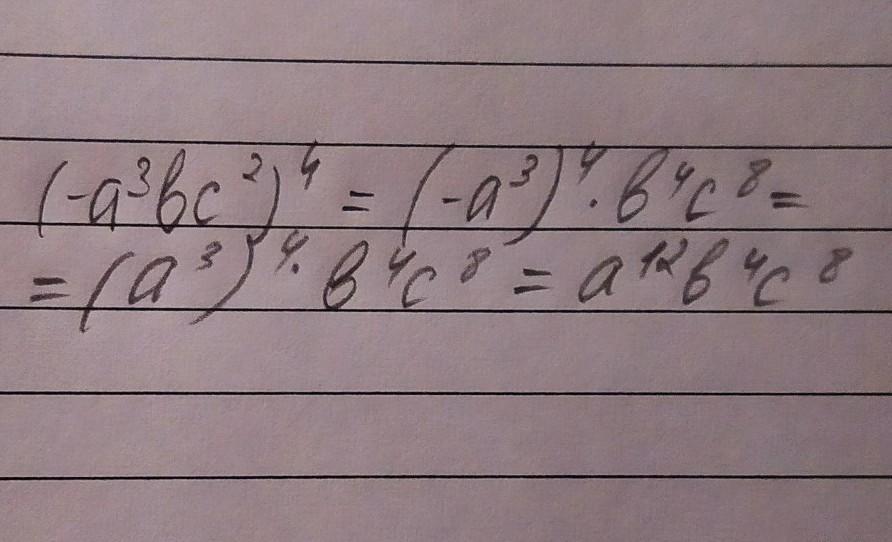 (-a³bc²)⁴ = (-a³)⁴ · b⁴c⁸ =
= (a³)⁴ · b⁴c⁸ = a¹²b⁴c⁸